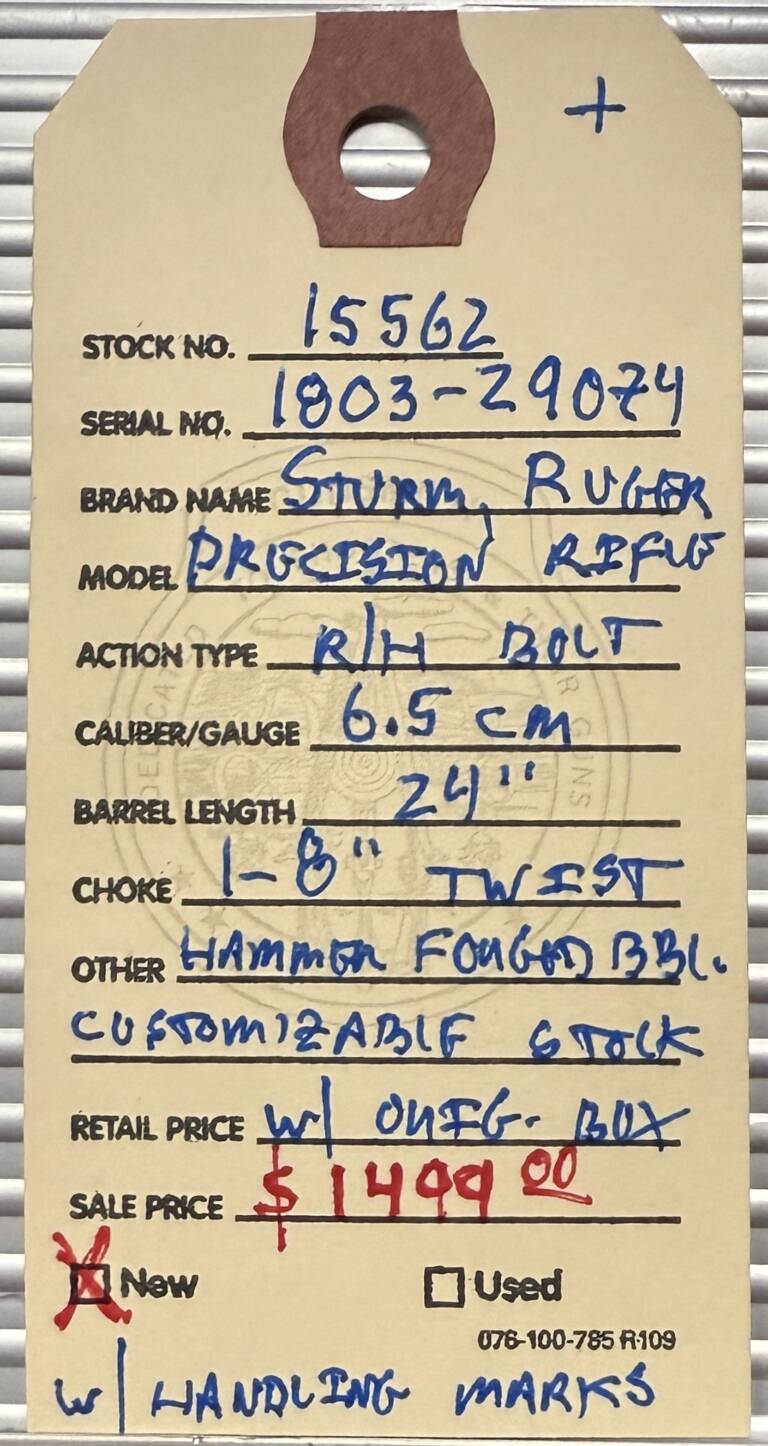 +
STOCK NO. 15562
SERIAL NO. 1803-29074
BRAND NAME STURM, RUGER
MODEL PRECISION RIFLE
ACTION TYPE R/H BOLT
CALIBER/GAUGE 6.5 CM
BARREL LENGTH 24"
CHOKE 1-8" TWIST
OTHER HAMMER FORGED BBL.
CUSTOMIZABLE STOCK
RETAIL PRICE W/ ORIG. BOX
SALE PRICE $1499 00
X New Used
076-100-785 R109
W/ HANDLING MARKS